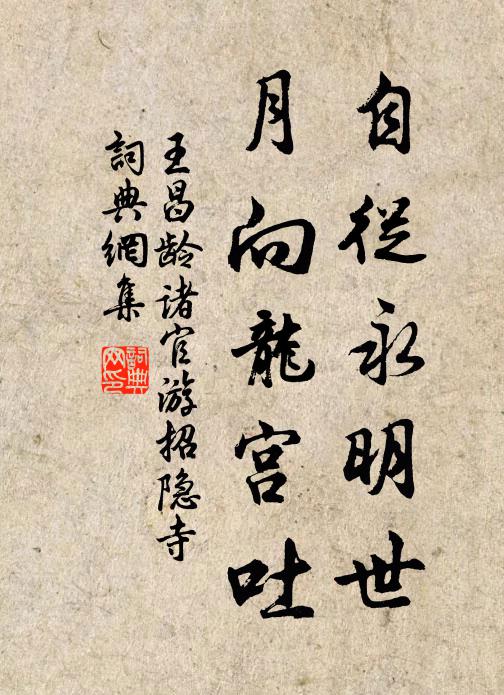 自從永明世
月向龍宫吐
王昌龄诸官游招隐寺
詞典網集
詞典网印